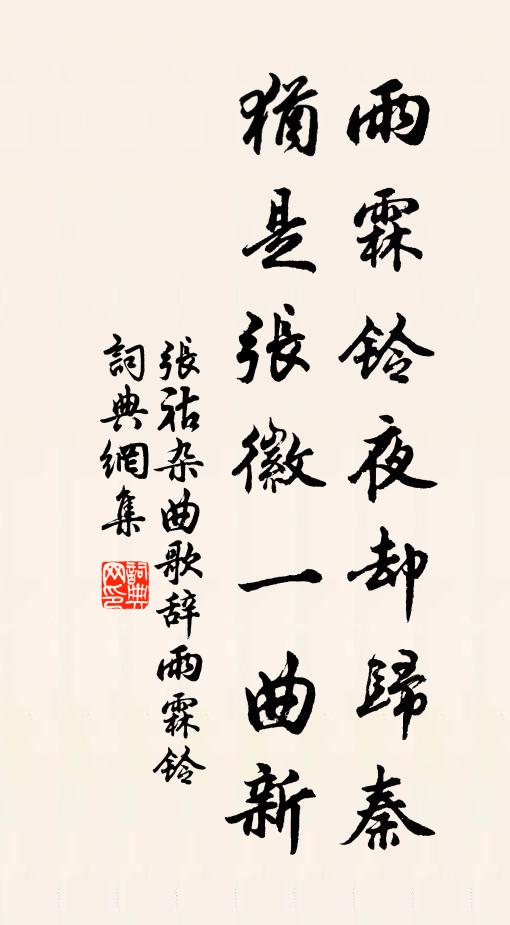 雨霖鈴夜却歸秦
猶是張徽一曲新
張祜杂曲歌辞雨霖铃
詞典網集
詞典
网印